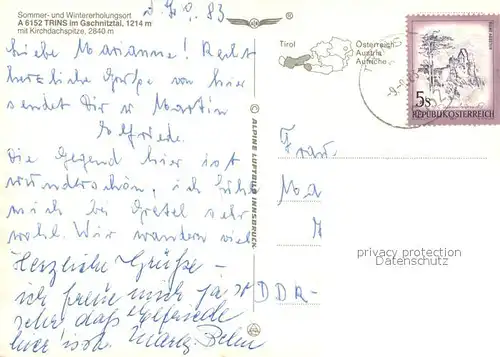 Sommer- und Wintererholungsort
A 6152 TRINS im Gschnitztal, 1214 m
mit Kirchdachspitze, 2840 m
83
Liebe Marianne! Recht
herzliche Grüße von hier
sendet Dir Martin
Elfriede.
Die Gegend hier ist
wunderschön, ich fühle
mich bei Gretel sehr
wohl. Wir wandern viel
Herzliche Grüße –
ich freue mich ja so
sehr daß Elfriede
hier ist.
© ALPINE LUFTBILD INNSBRUCK
Tirol
Österreich
Austria
Autriche
5s
REPUBLIK ÖSTERREICH
Frau
Ma
DDR-
privacy protection
Datenschutz